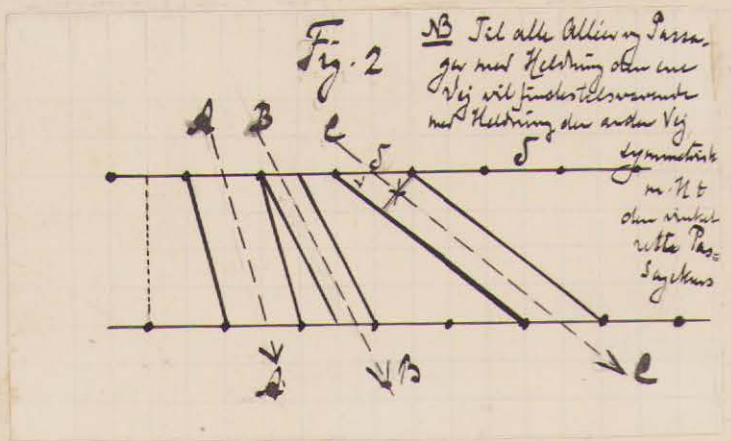 Fig. 2
NB Til alle Alléer og Passa-
ger med Heldning den ene
Vej vil findes tilsvarende
med Heldning den anden Vej,
symmetrisk
m. H t
den vinkel
rette Pas=
sagekurs
A B C
δ δ
A B C